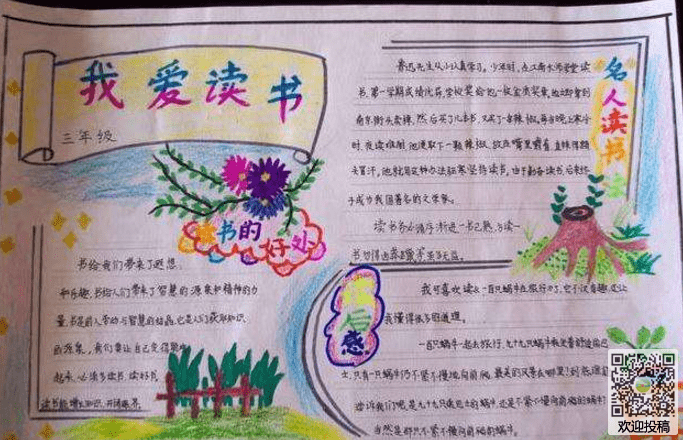 我爱读书
三年级
读书的
好处
书给我们带来了遐想
和乐趣.书给人们带来了智慧的源泉和精神的力
量.书是前人劳动与智慧的结晶.它是人们获取知识
的源泉，我们要让自己变得聪明
起来，必须多读书，读好书
读书能增长知识，开阔眼界
名人读书法
鲁迅先生从小认真学习。少年时，在江南水师学堂读
书，第一学期成绩优异，学校奖给他一枚金质奖章，他立即拿到
南京街头卖掉，然后买了几本书，又买了一串辣椒，每当晚上寒冷
时，夜读难耐，他便取下一颗辣椒，放在嘴里嚼着，直辣得额
头冒汗，他就用这种办法驱寒坚持读书，由于勤奋读书，后来终
于成为我国著名的文学家。
读书务必循序渐进一书已熟，方读一
书
后感
我可喜欢读《一只蜗牛在旅行》了，它不仅有趣，还让
我懂得很多的道理。
一百只蜗牛一起去旅行，九十九只蜗牛
只有一只蜗牛仍不紧不慢地向前爬，最美的风景在哪里？到低
告诉我们呢，是九十九只
的蜗牛，还是不紧不慢向前爬的蜗牛？
当然是那只不紧不慢向前爬的蜗牛
欢迎投稿